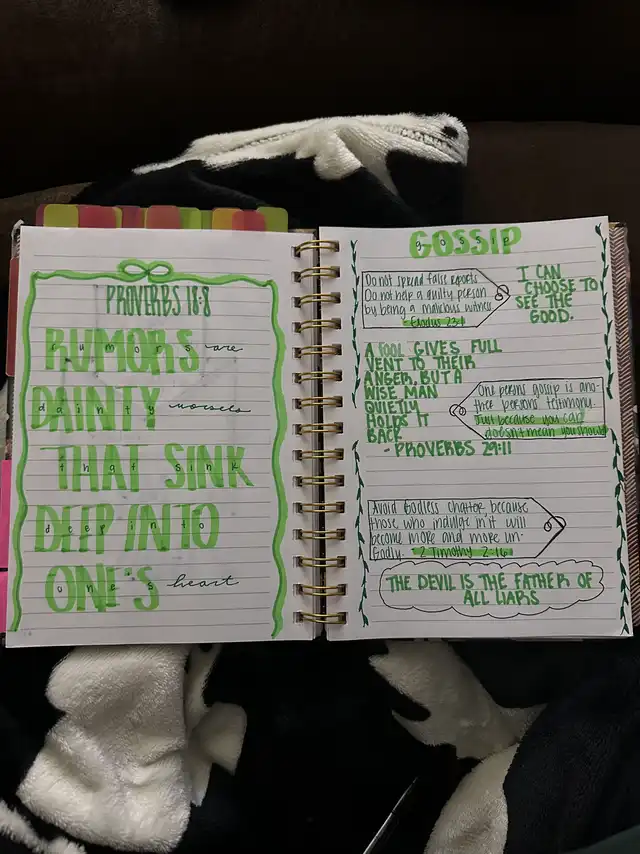 PROVERBS 18:8
RUMORS are
rumors
DAINTY morsels
dainty
THAT SINK
that sink
DEEP INTO
deep into
ONE'S heart
ones
GOSSIP
gossip
Do not spread false reports.
Do not help a guilty person
by being a malicious witness
Exodus 23:1
I CAN
CHOOSE TO
SEE THE
GOOD.
A FOOL GIVES FULL
VENT TO THEIR
ANGER, BUT A
WISE MAN
QUIETLY
HOLDS IT
BACK
- PROVERBS 29:11
One persons gossip is ano-
ther persons testimony.
Just because you can
doesn't mean you should
Avoid Godless chatter, because
those who indulge in it will
become more and more un-
Godly. 2 Timothy 2:16
THE DEVIL IS THE FATHER OF
ALL LIARS